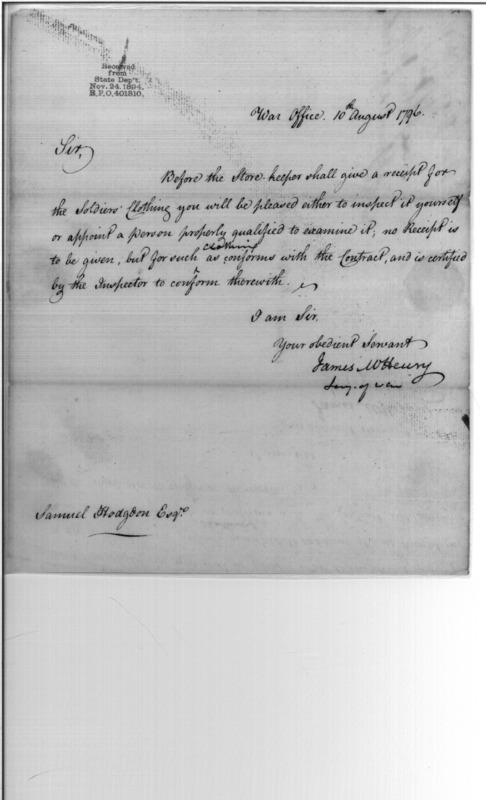 Received
from
State Dep't.
Nov. 24. 1894.
R.P.O. 401810.
War Office. 10th August 1796.
Sir,
Before the Store-keeper shall give a receipt for
the Soldiers' Clothing you will be pleased either to inspect it yourself
or appoint a person properly qualified to examine it; no Receipt is
to be given, but for such clothing as conforms with the Contract, and is certified
by the Inspector to conform therewith.
I am Sir.
Your obedient Servant
James McHenry
Secy. of war
Samuel Hodgdon Esqr.